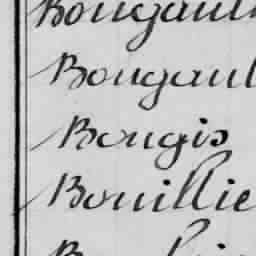 Bougault
Bougaul
Bougis
Bouillie